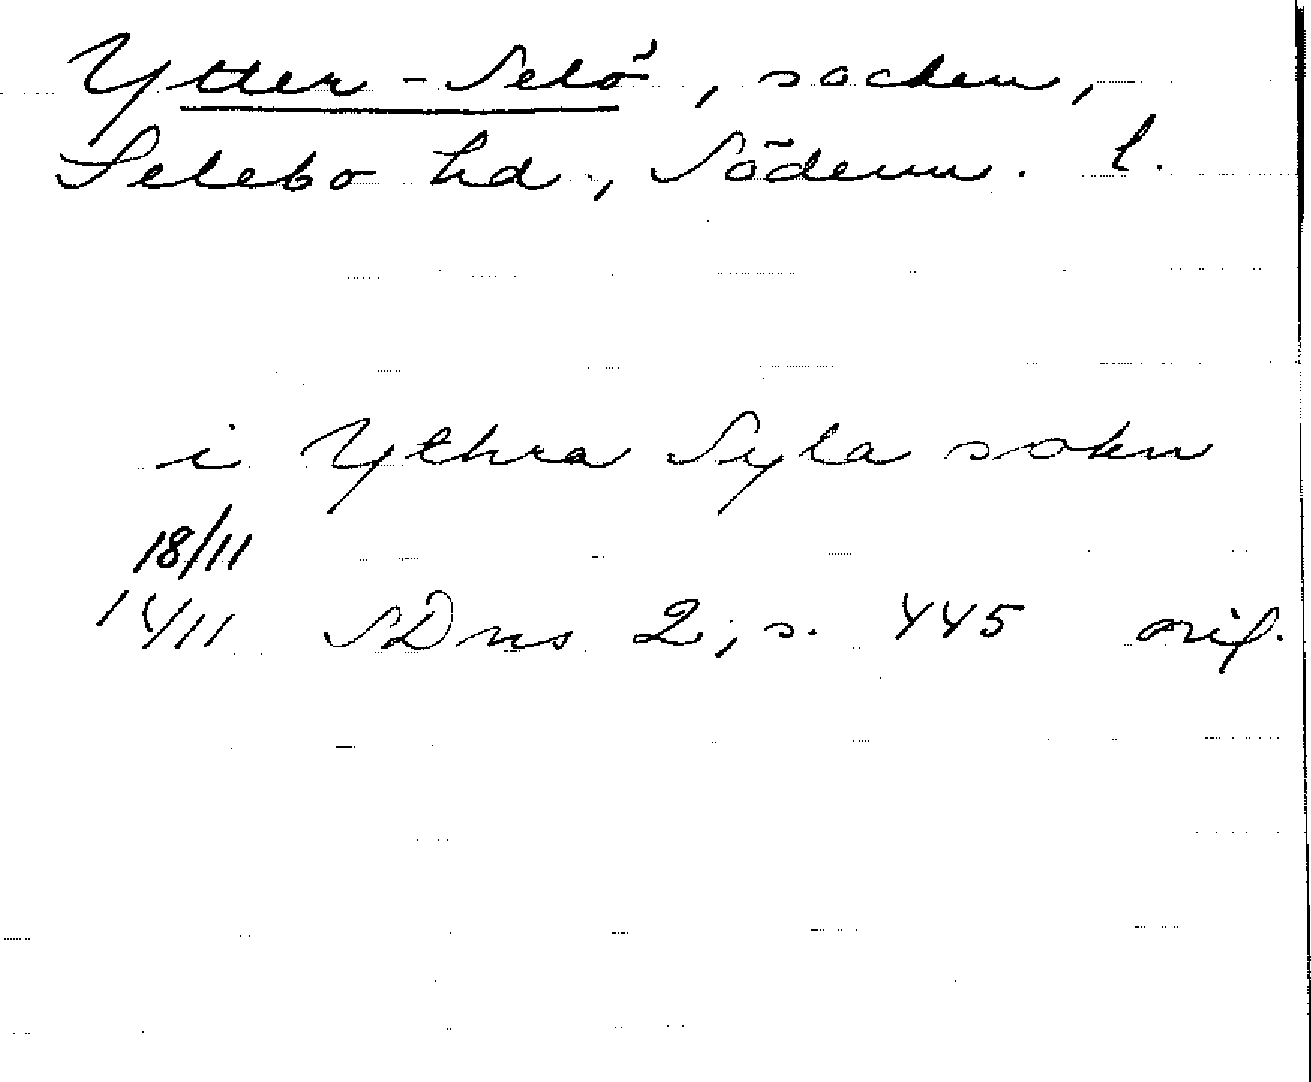 Ytter-Selö, socken,
Selebo hd., Söderm. l.
i Ythra Syla sokn
18/11
14/11 SDns 2, s. 445 orig.